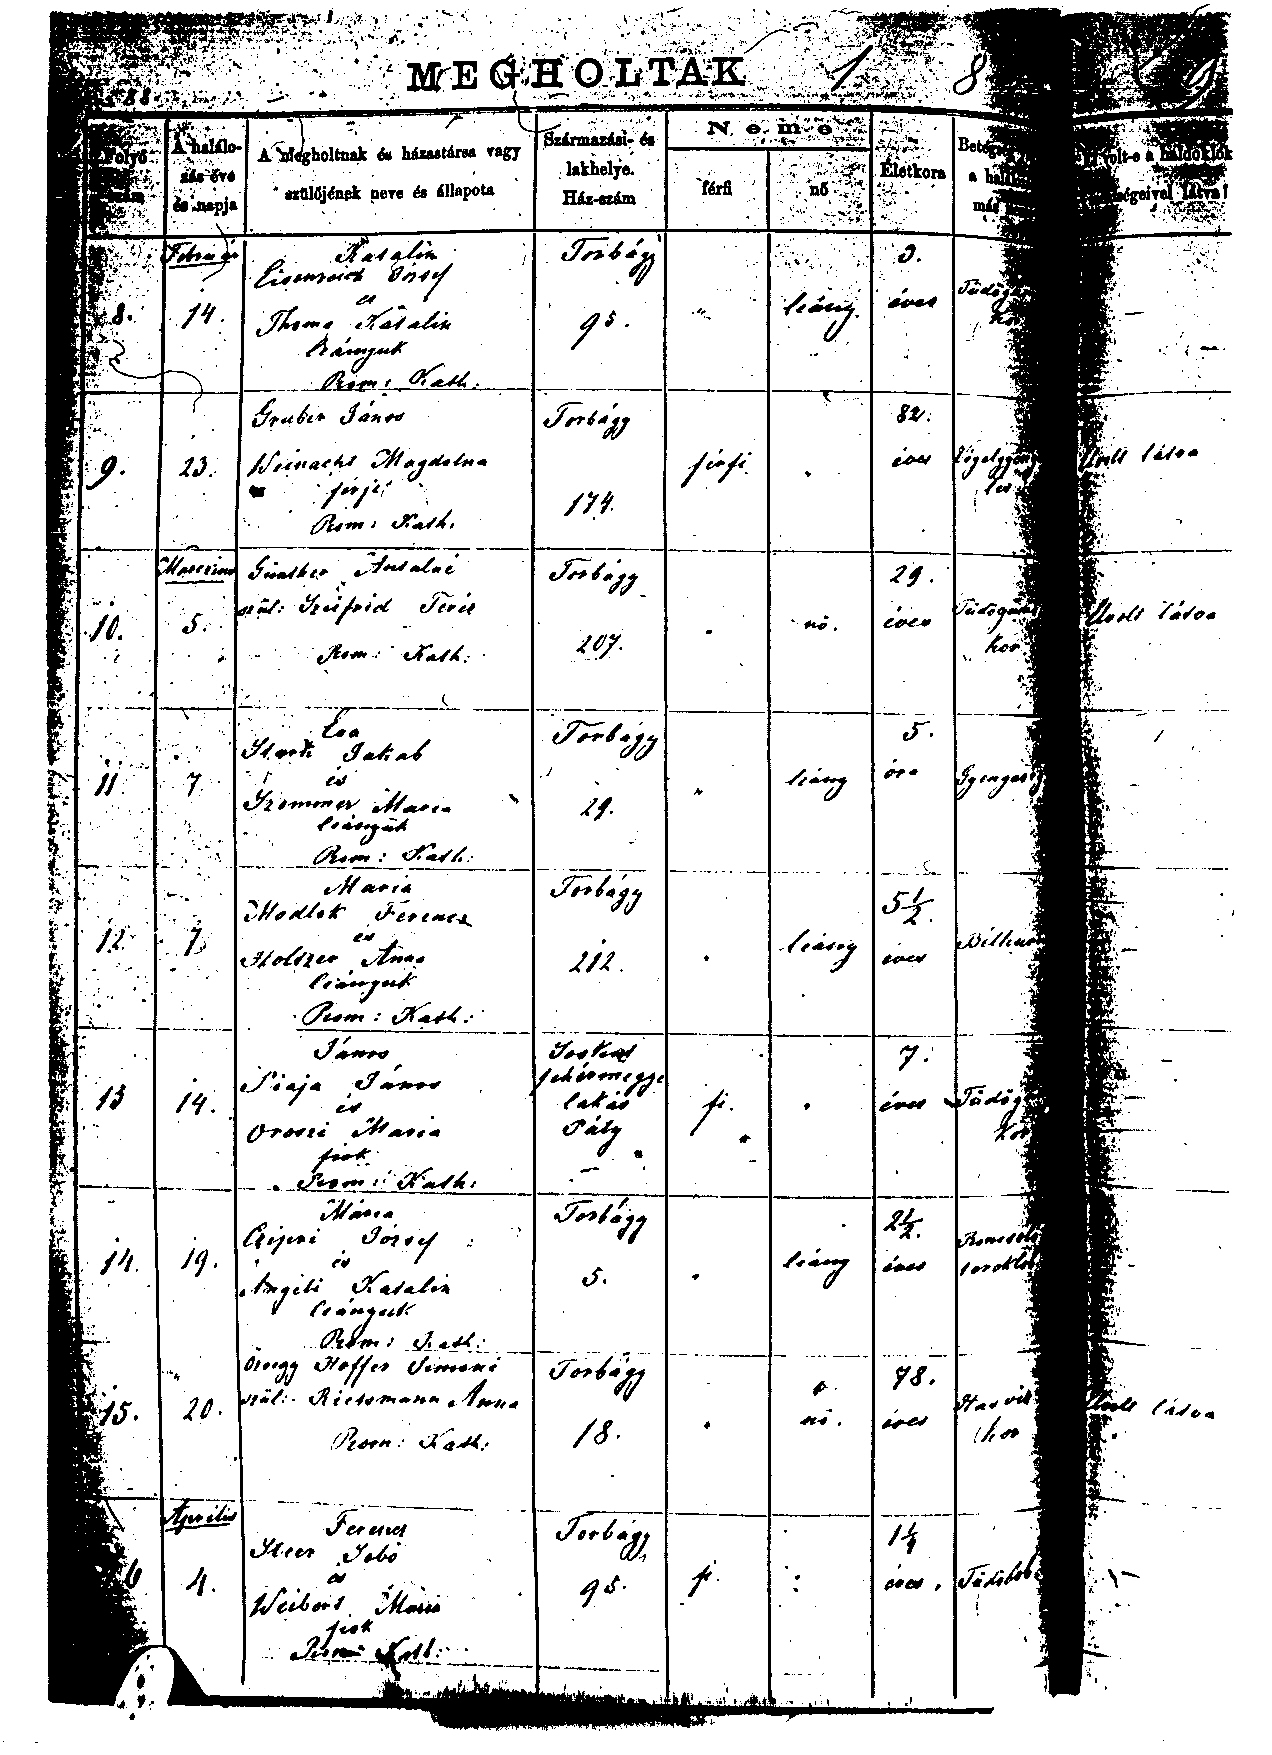 MEGHOLTAK 1 8
88.
Folyó szám
A halálo-
zás éve
és napja
A megholtnak és házastársa vagy
szülőjének neve és állapota
Származási- és
lakhelye.
Ház-szám
Neme
férfi
nő
Életkora
volt-e a haldoklók
ségeivel látva?
Február
8.
14.
Katalin
Eisenreich József
és
Thoma Katalin
leányuk
Rom: Kath:
Torbágy
95.
"
leány
3.
éves
9.
23.
Gruber János
Weinacht Magdolna
férje
Rom: Kath.
Torbágy
174.
férfi
82.
éves
Végelgyeng
lés
Volt látva
Marczius
10.
5.
Günther Antalné
szül: Szeifrid Teréz
Rom: Kath:
Torbágy
207.
nő.
29.
éves
kor
Volt látva
11
7
Éva
Stark Jakab
és
Szommer Maria
leányuk
Rom: Kath:
Torbágy
29.
"
leány
5.
óra
Gyengeség
12.
7
Maria
Modlok Ferencz
és
Holszer Anna
leányuk
Rom: Kath:
Torbágy
212.
leány
5½
éves
13
14.
János
Piaja János
és
Oroszi Maria
fiok
Rom: Kath:
fehérmegye
lakás
Páty
fi.
7.
éves
14.
19.
Mária
József
és
Angeli Katalin
leányuk
Rom: Kath:
Torbágy
5.
leány
2½
éves
15.
20.
özvegy Hoffer Simoné
szül: Rieszmann Anna
Rom: Kath:
Torbágy
18.
nő.
78.
éves
Volt látva
Április
6
4.
Ferencz
Steer Jobó
és
Weibert Mária
fiok
Rom: Kath:
Torbágy
95.
fi.
1¼
éves